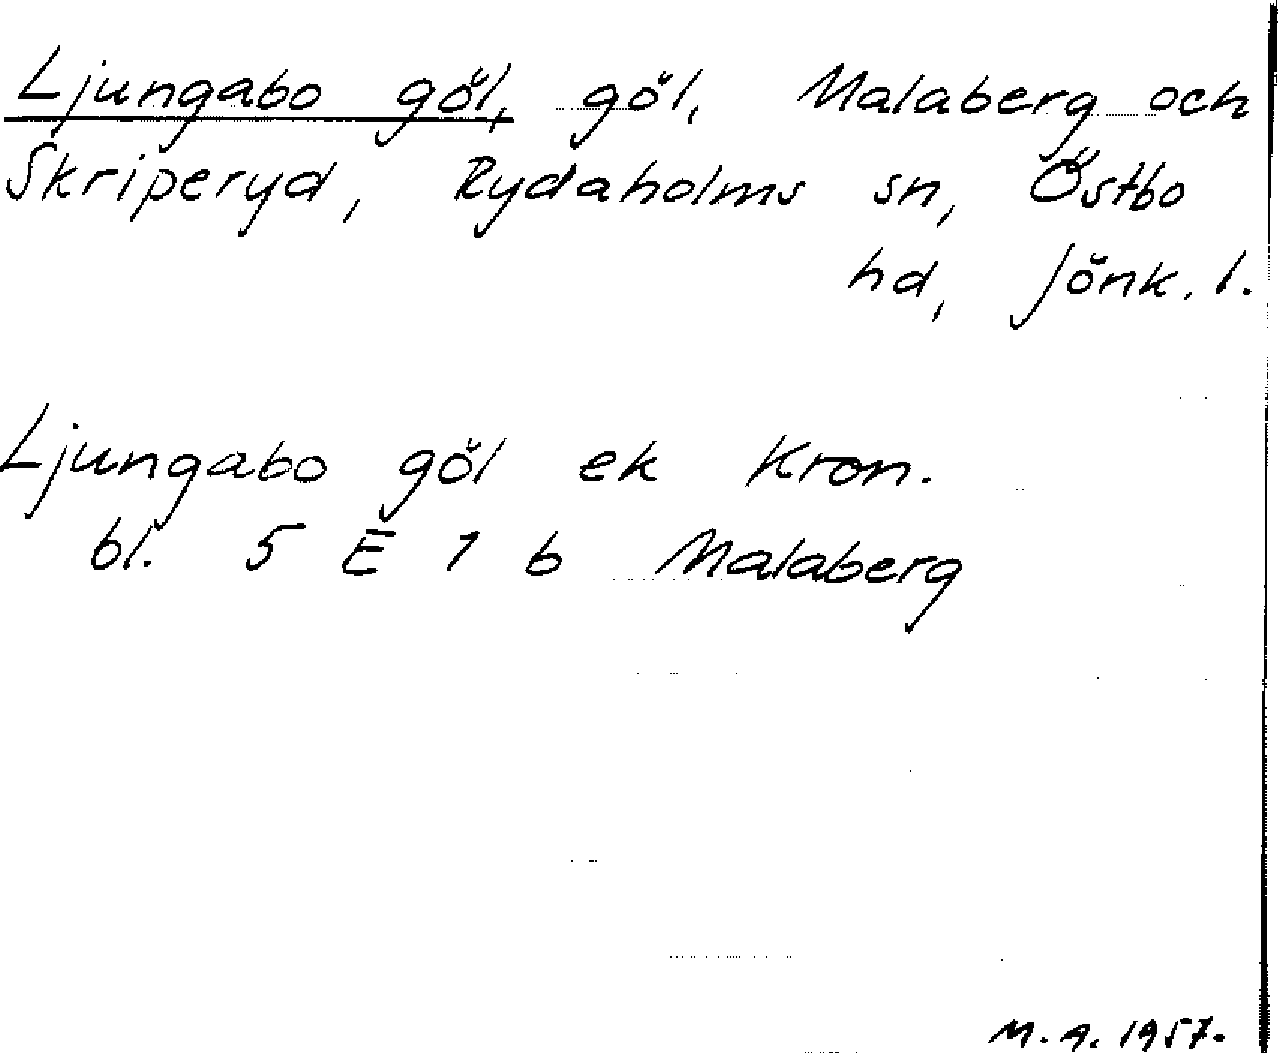 Ljungabo göl, göl, Malaberg och
Skriperyd, Rydaholms sn, Östbo
hd, Jönk. l.
Ljungabo göl ek Kron.
bl. 5 E 1 b Malaberg
M. A. 1957.